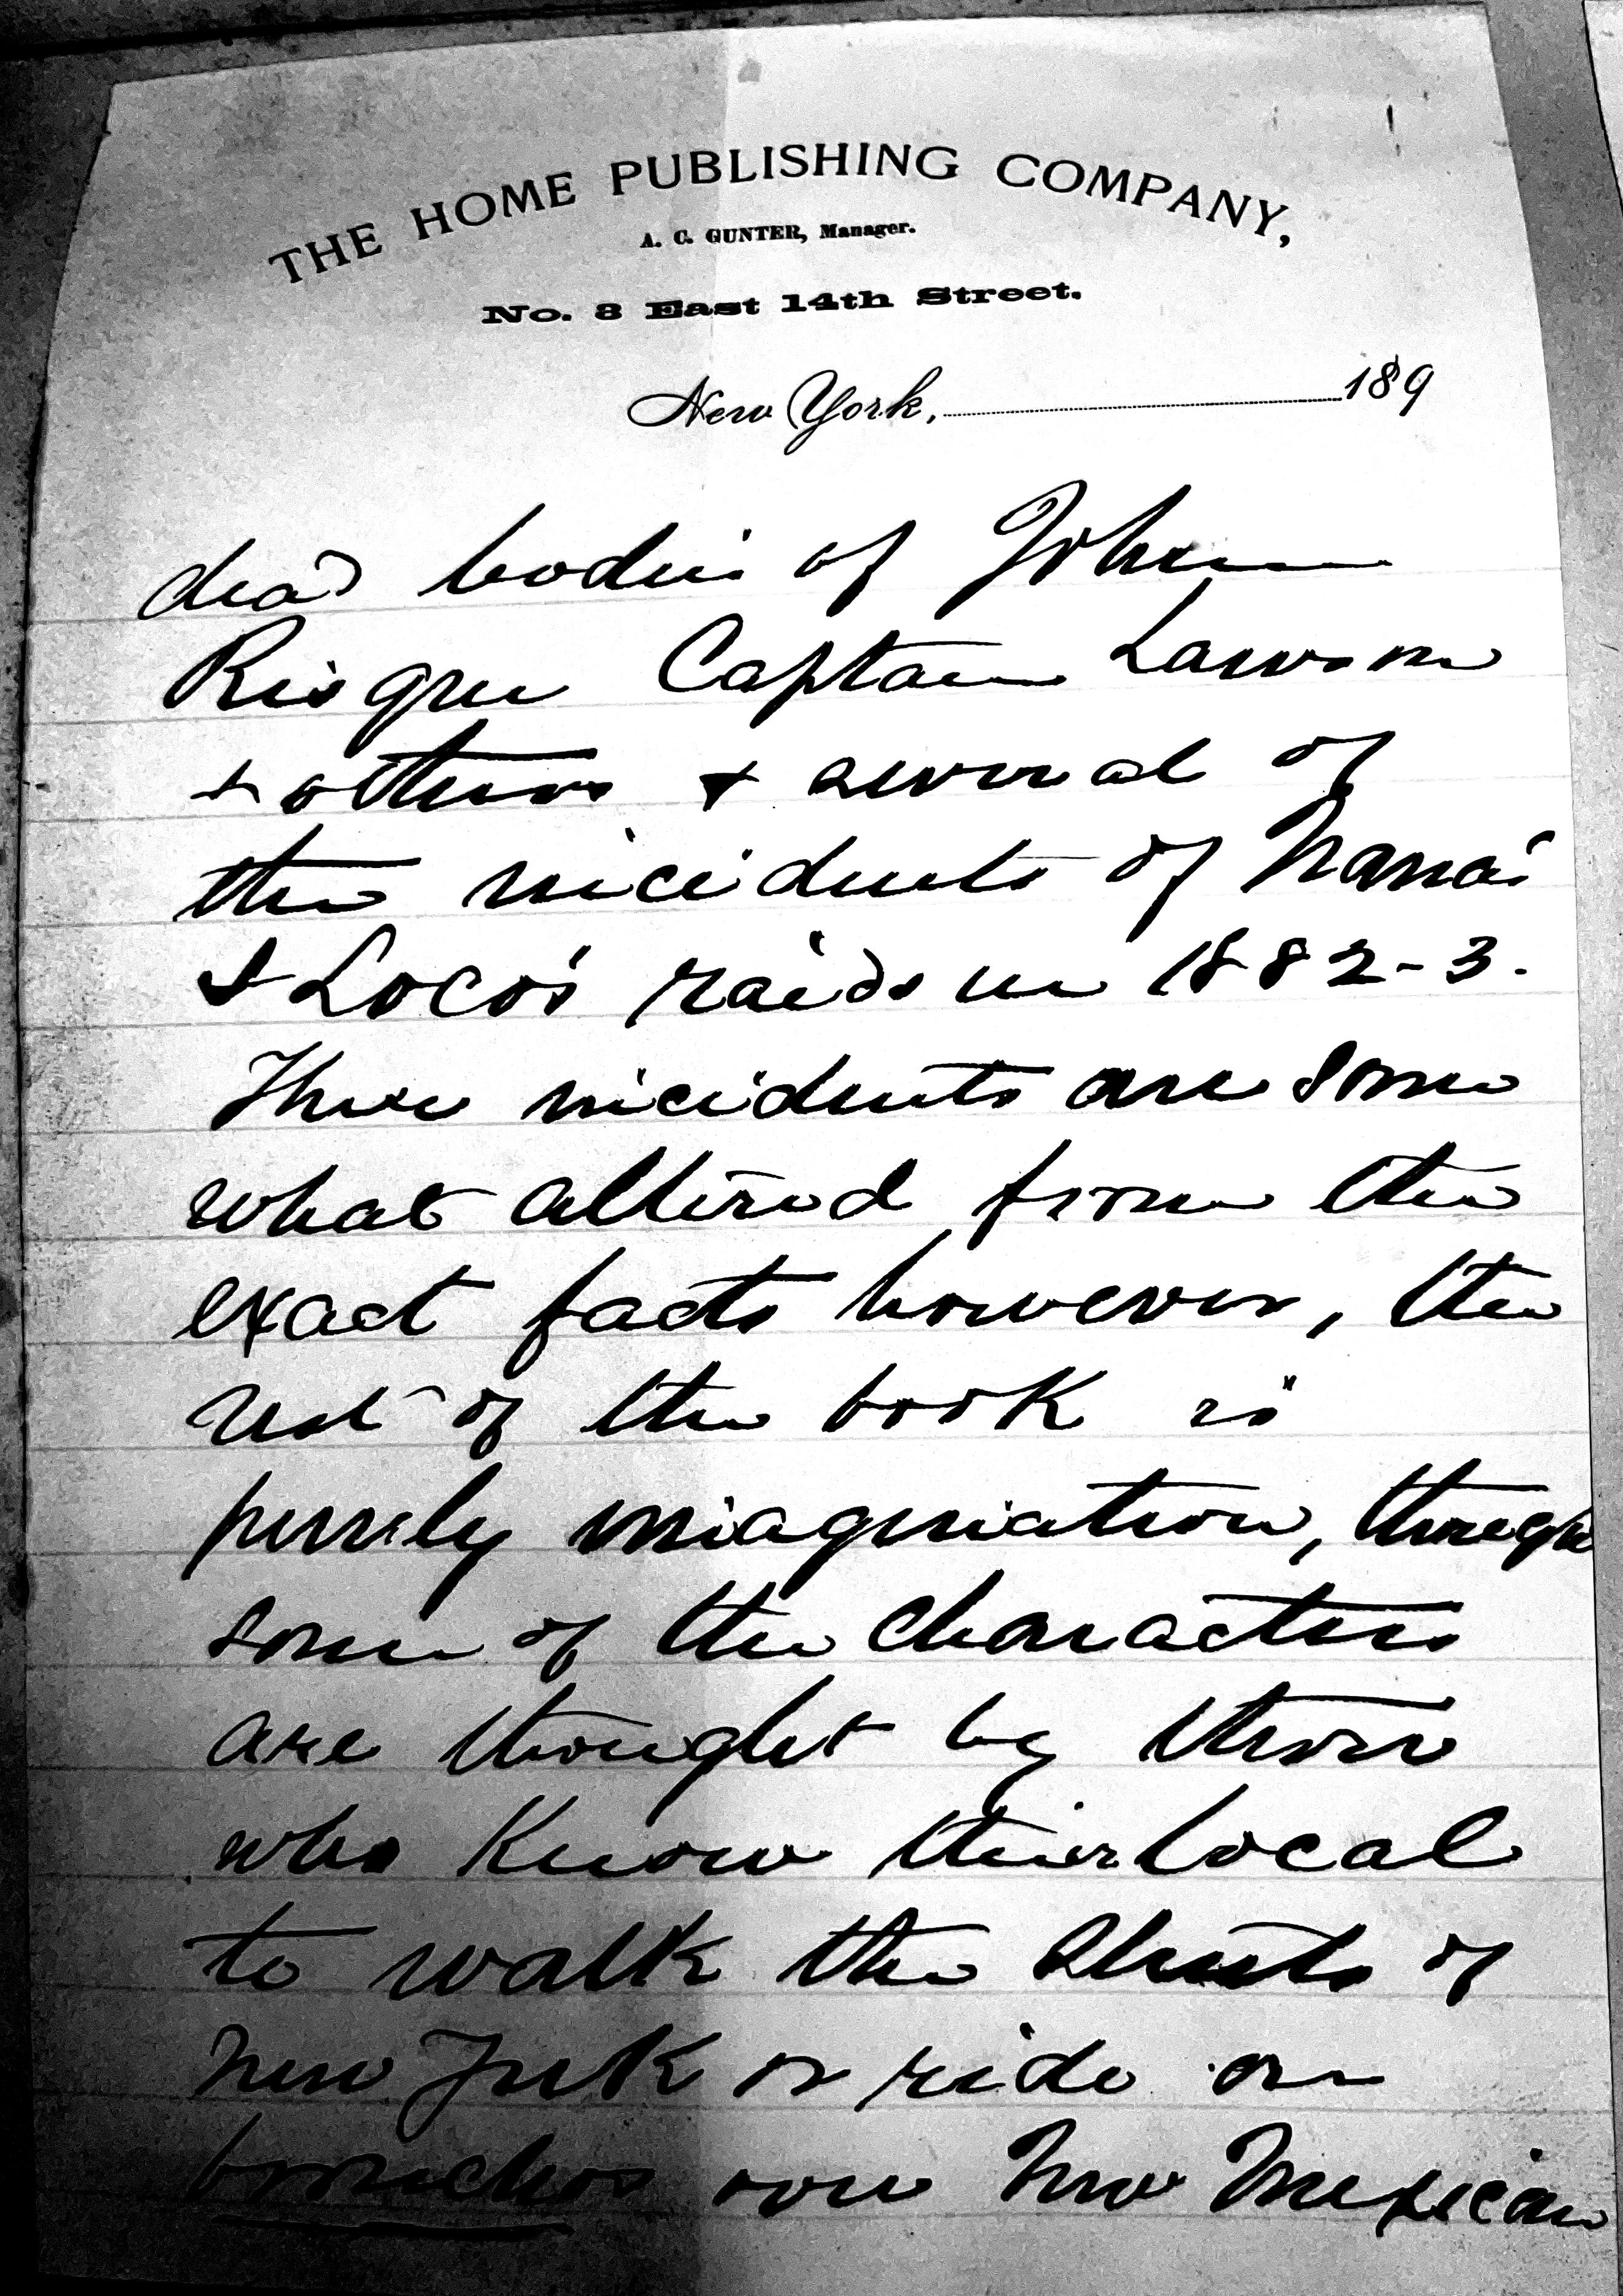 THE HOME PUBLISHING COMPANY,
A. C. GUNTER, Manager.
No. 3 East 14th Street.
New York, 189
dead bodies of John
Risque Captain Lawson
& others & several of
the incidents of Nana's
& Loco's raids in 1882-3.
These incidents are some
what altered from the
exact facts however, the
rest of the book is
purely imagination, though
some of the characters
are thought by those
who know their local
to walk the streets of
New York or ride on
bronchos over New Mexican